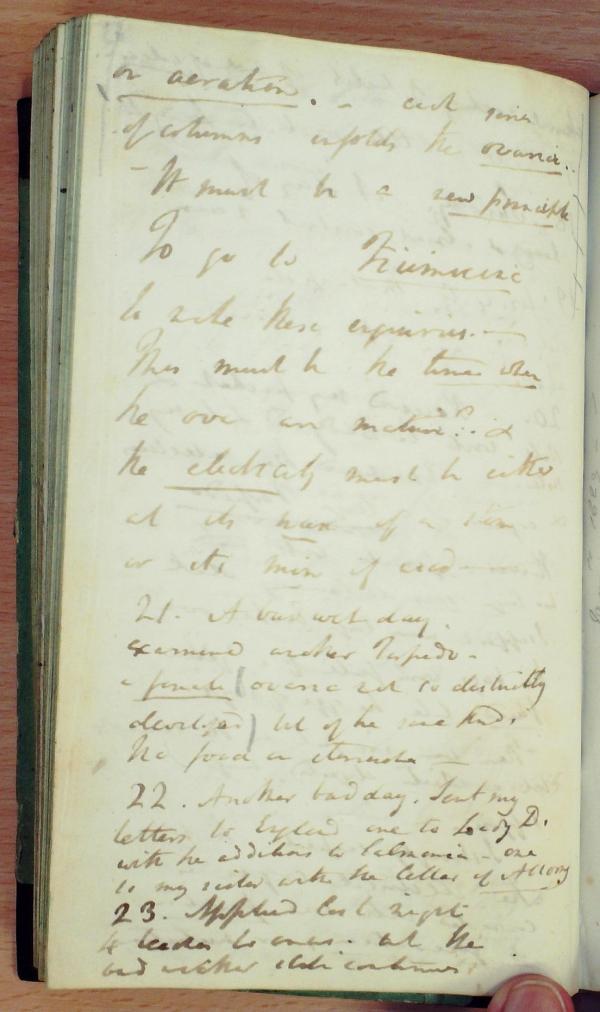 or aeration. - each series
of columns enfolds the ovaria.
- It must be a new principle
To go to Fiumicino
to make these enquiries. -
This must be the time when
the ova are mature?. &
the electricity must be either
at its max of a
or its min of
21. A bad wet day.
examined another Torpedo -
a female (ovaria not so distinctly
developed) but of the same kind.
No food in stomach -
22. Another bad day. Sent my
letters to England one to Lady D.
with the additions to Salmonia - one
to my sister with the letter of
23. Applied last night
4 leeches to anus. but the
bad weather still continues